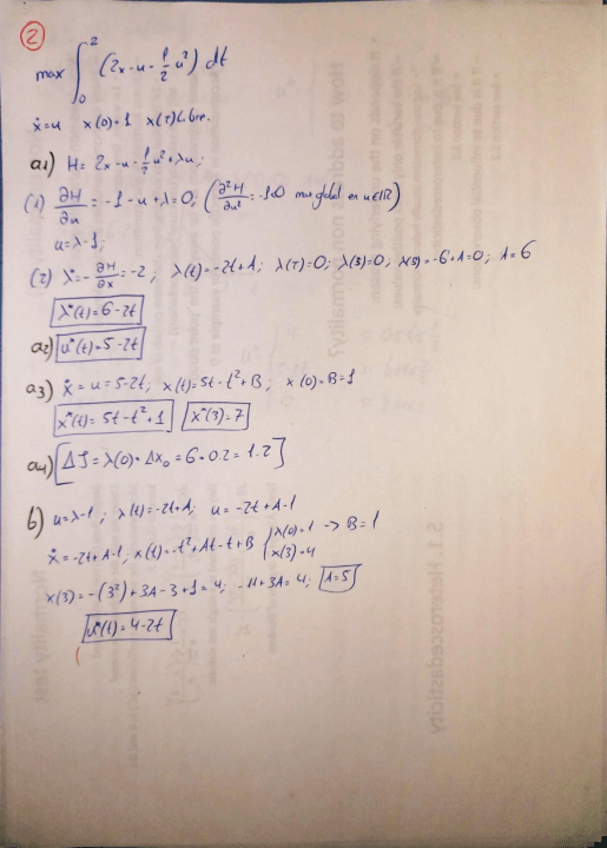 2
max ∫₀² (2x-u-½u²) dt
ẋ=u x(0)=1 x(T) libre.
a1) H= 2x-u-½u²+λu;
(1) ∂H/∂u = -1-u+λ=0; (∂²H/∂u² = -1<0 max global en u∈ℝ)
u=λ-1;
(2) λ̇=-∂H/∂x=-2; λ(t)=-2t+A; λ(T)=0; λ(3)=0; λ(3)=-6+A=0; A=6
λ*(t)=6-2t
a2) u*(t)=5-2t
a3) ẋ=u=5-2t; x(t)=5t-t²+B; x(0)=B=1
x*(t)=5t-t²+1 x*(3)=7
a4) [ΔJ=λ(0)·Δx₀=6·0.2=1.2]
b) u=λ-1; λ(t)=-2t+A; u=-2t+A-1
ẋ=-2t+A-1; x(t)=-t²+At-t+B { x(0)=1 -> B=1
x(3)=4
x(3)=-(3²)+3A-3+1=4; -11+3A=4; A=5
u*(t)=4-2t